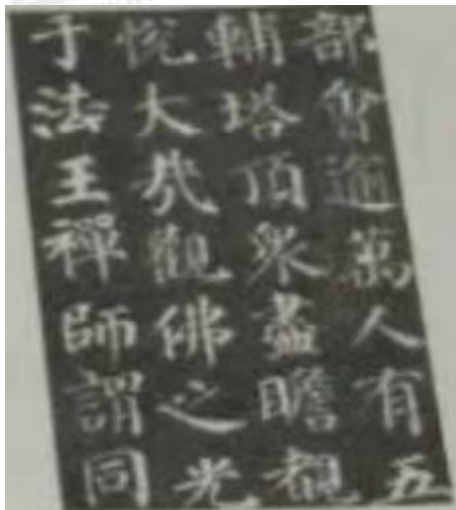 部萬人有五
輔塔頂衆盡瞻覩
悅大哉觀佛之光
于法王禪師謂同